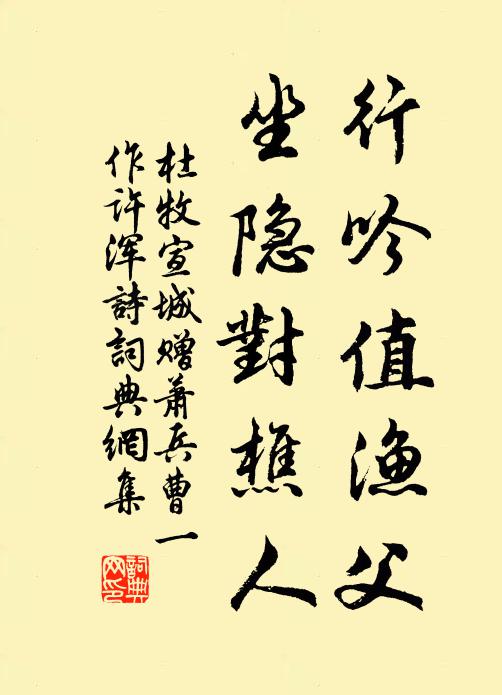 行吟值渔父
坐隐對樵人
杜牧宣城赠萧兵曹一
作许浑詩詞典網集
詞典
网印